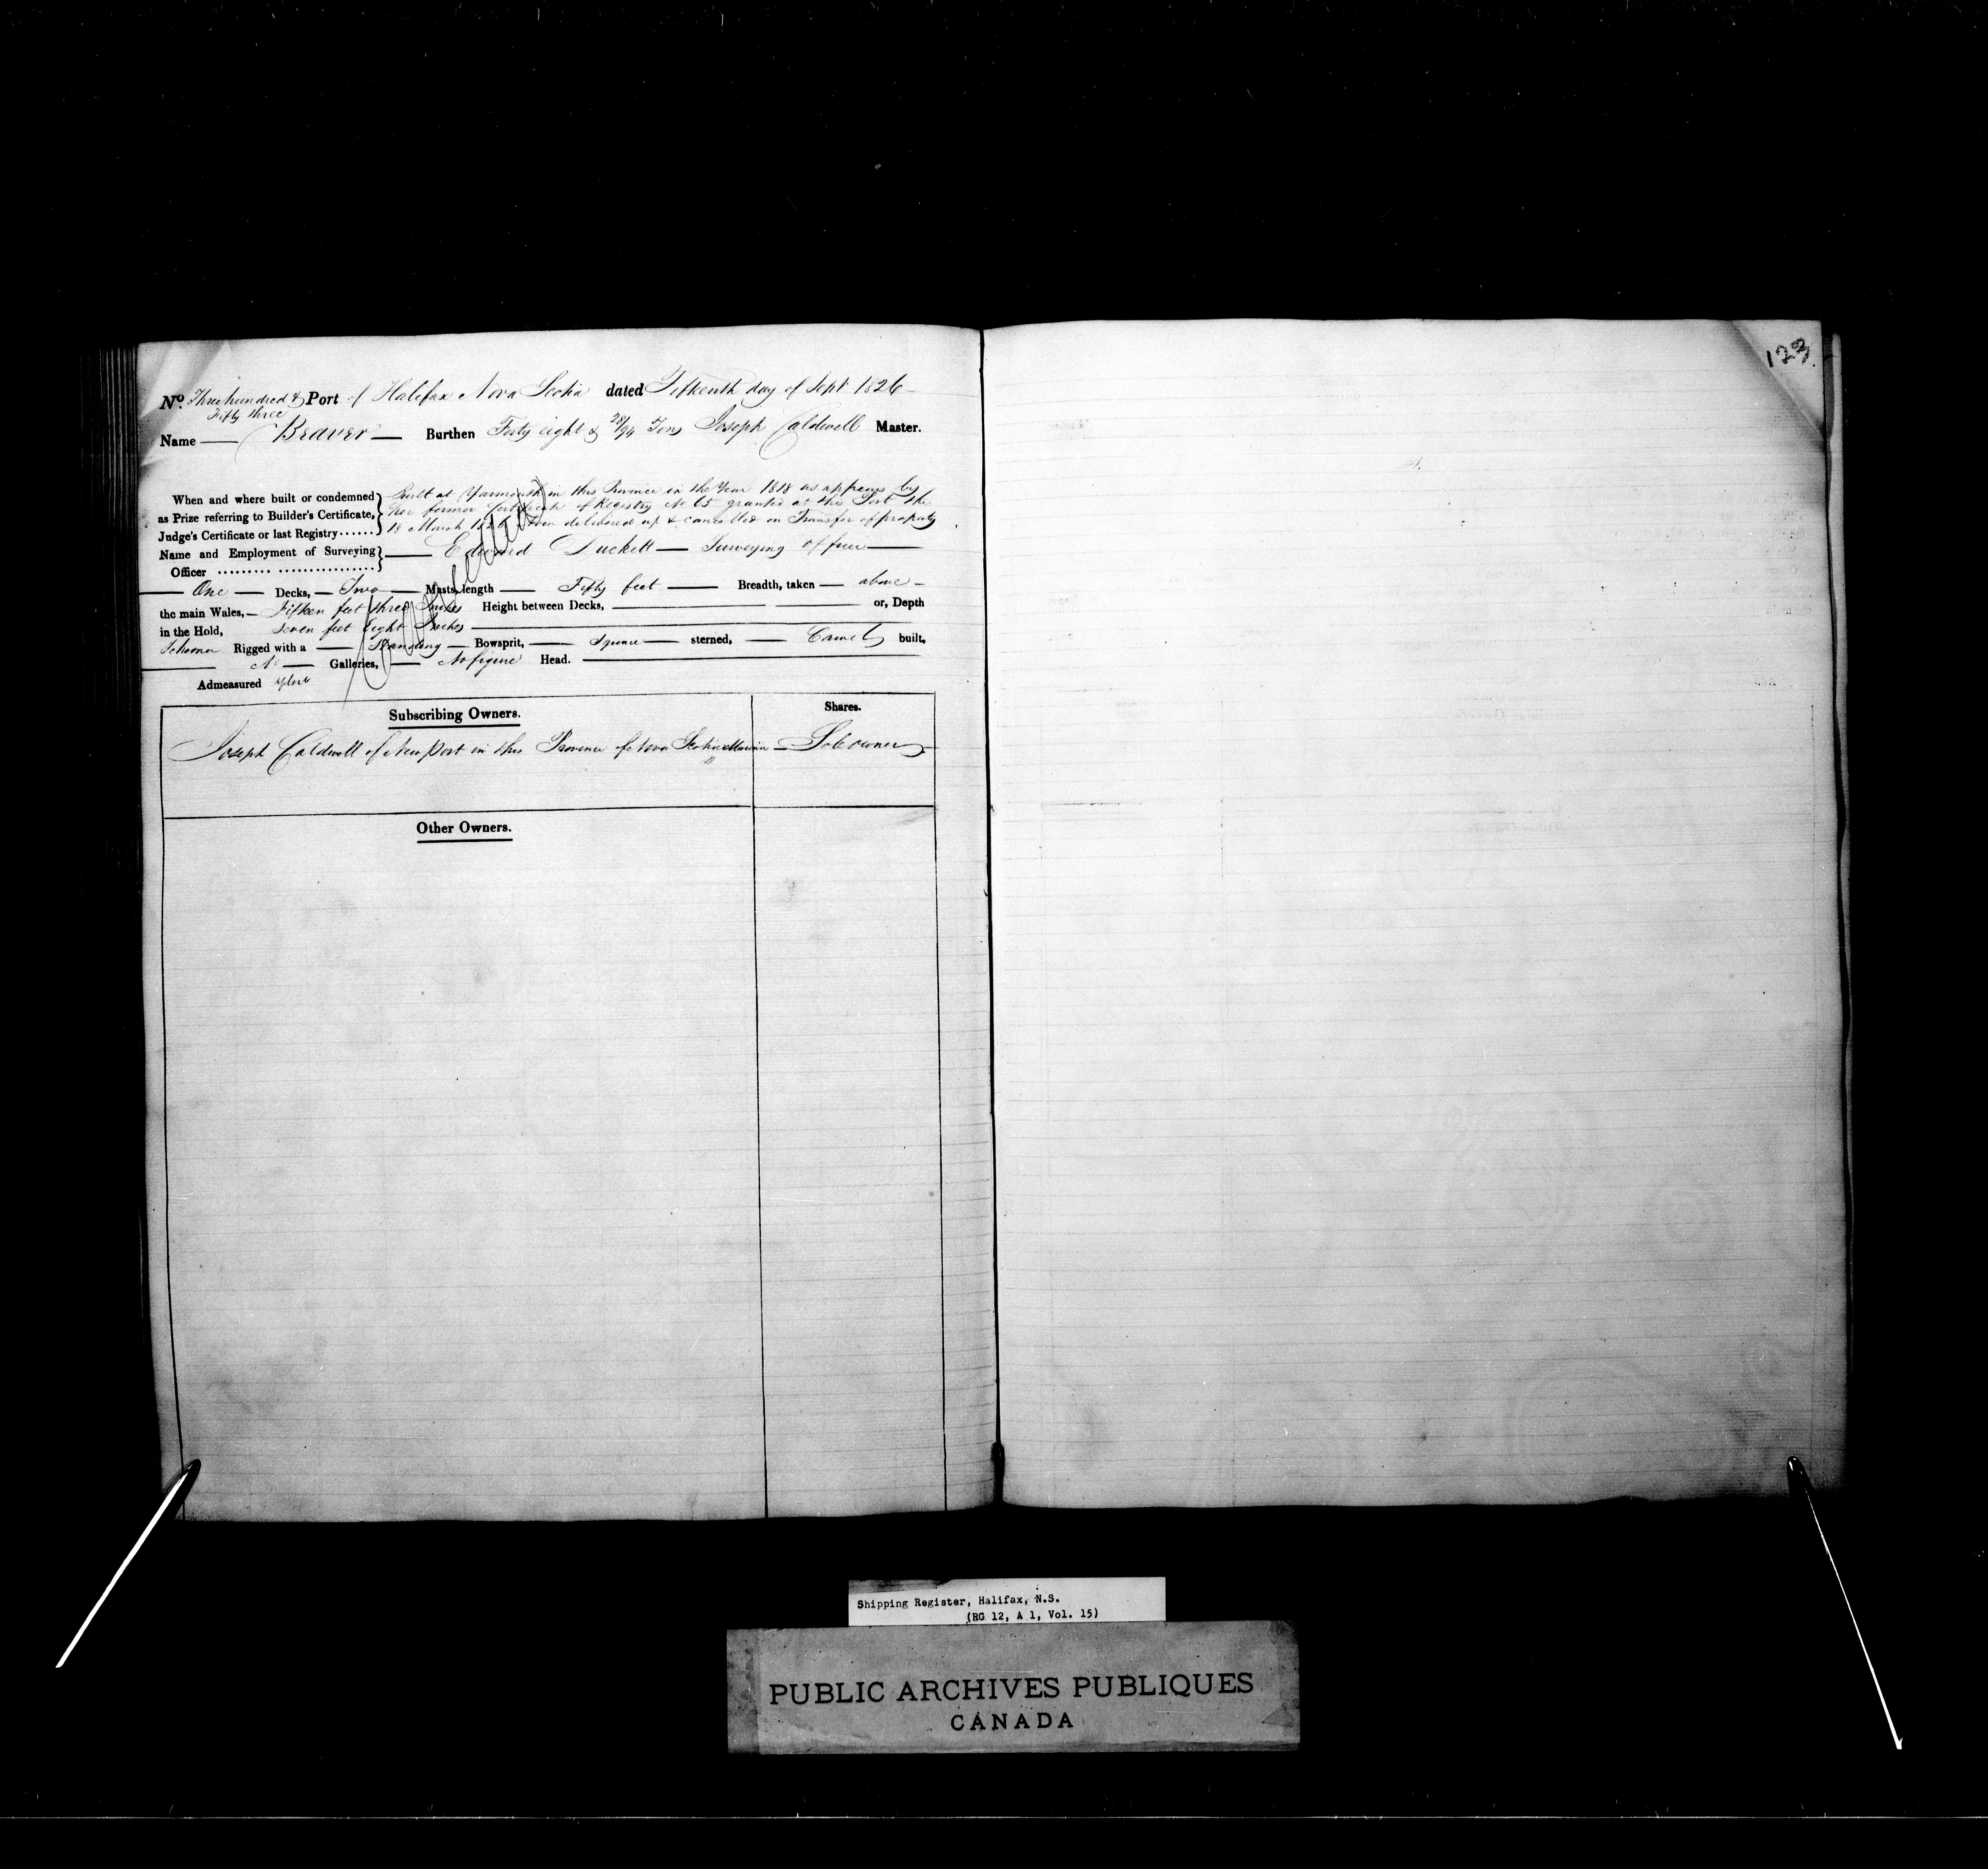 123.
No. Three hundred & Port of Halifax Nova Scotia dated Fifteenth day of Sept 1826
Fifty three
Name — Beaver — Burthen Forty eight & 28/94 Tons Joseph Caldwell Master.
When and where built or condemned Built at Yarmouth in this Province in the Year 1818 as appears by
as Prize referring to Builder's Certificate, her former Certificate of Registry No 65 granted at this Port the
Judge's Certificate or last Registry...... 18 March 1826 now delivered up & cancelled on Transfer of property
Name and Employment of Surveying — Edward Duckett — Surveying officer —
Officer
— One — Decks, — Two — Masts, length — Fifty feet — Breadth, taken — above —
the main Wales, — Fifteen feet three Inches Height between Decks, — or, Depth
in the Hold, Seven feet Eight Inches
Schooner Rigged with a — Standing — Bowsprit, — Square — sterned, — Carvel built,
No — Galleries, — No figure Head.
Admeasured
Cancelled
Subscribing Owners. Shares.
Joseph Caldwell of Newport in this Province of Nova Scotia Mariner — Sole owner —
Other Owners.
Shipping Register, Halifax, N.S.
(RG 12, A 1, Vol. 15)
PUBLIC ARCHIVES PUBLIQUES
CANADA